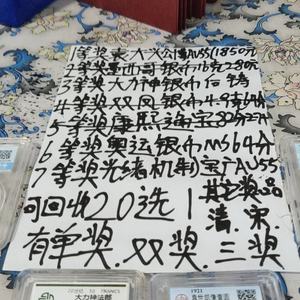 1等奖袁大头公博AU55(1850元
2等奖墨西哥银币16克280元
3等奖大力神银币后铸
4等奖双凤银币4.9克64分
5等奖康熙通宝82分
6等奖奥运银币MS64分
7等奖光绪机制宝广AU55
其它奖品
可回收20选1
清、宋
有单奖、双奖、三奖
大力神法郎
1921